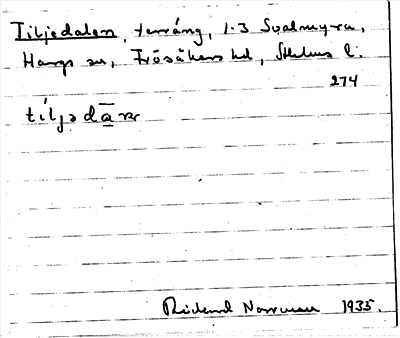 Tiljedalen, terräng, 1.3 Svalmyra,
Hargs sn, Frösåkers hd, Sthlms l.
274
Richard Norrman 1935.